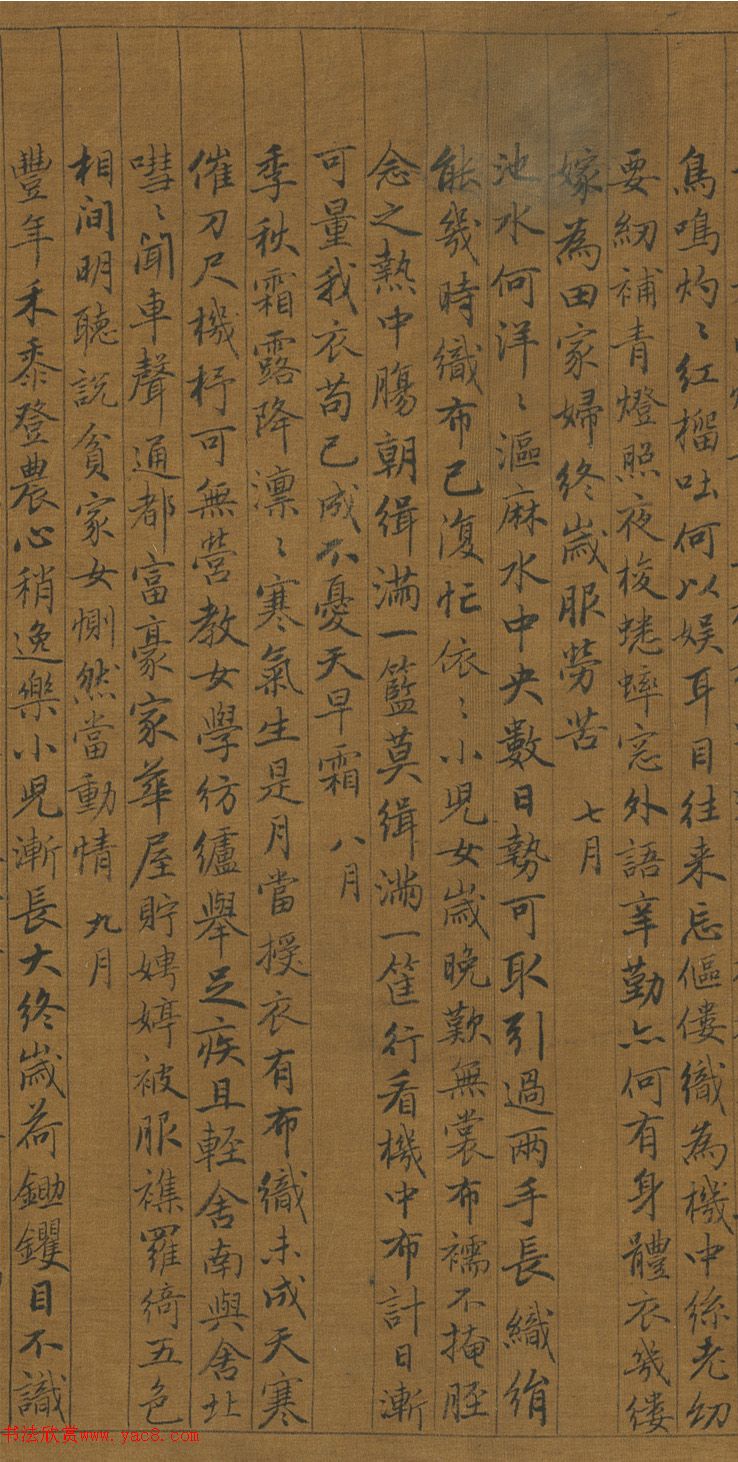 鳥鳴灼〻紅榴吐何以娱耳目往来忘傴僂織為機中絲老幼
要紉補青燈照夜梭蟋蟀窓外語辛勤亦何有身體衣幾縷
嫁為田家婦終歲服勞苦 七月
池水何洋〻漚麻水中央數日勢可取引過兩手長織絹
能幾時織布已復忙依〻小兒女歲晚歎無裳布襦不掩脛
念之熱中腸朝緝滿一籃莫緝滿一筐行看機中布計日漸
可量我衣苟已成不憂天早霜 八月
季秋霜露降凛〻寒氣生是月當授衣有布織未成天寒
催刀尺機杼可無營教女學紡纑舉足疾且輕舍南與舍北
嘒〻聞車聲通都富豪家華屋貯娉婷被服襍羅綺五色
相间明聽説貧家女惻然當動情 九月
豐年禾黍登農心稍逸樂小兒漸長大終歲荷鋤钁目不識
书法欣赏www.yac8.com